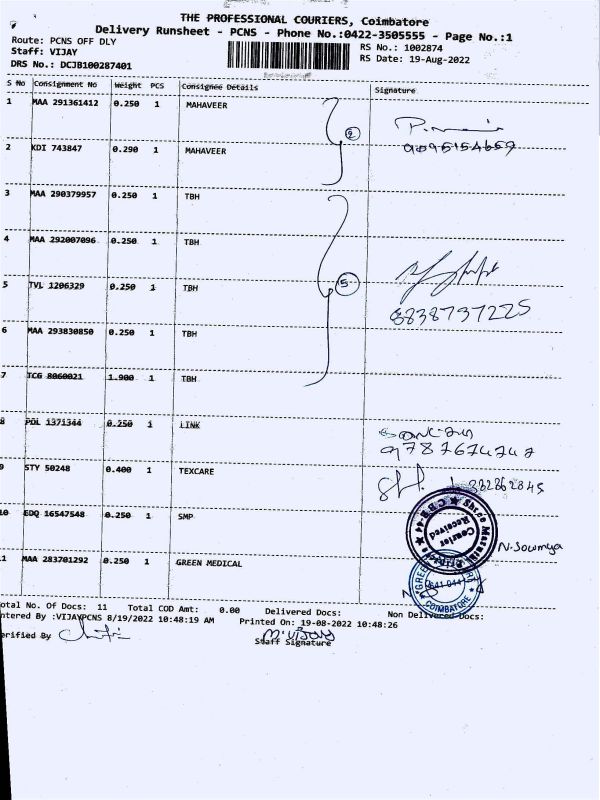 THE PROFESSIONAL COURIERS, Coimbatore
Delivery Runsheet - PCNS - Phone No.:0422-3505555 - Page No.:1
Route: PCNS OFF DLY
RS No.: 1002874
Staff: VIJAY
RS Date: 19-Aug-2022
DRS No.: DCJB100287401
S No Consignment No Weight PCS Consignee Details Signature
1 MAA 291361412 0.250 1 MAHAVEER
2
2 KDI 743847 0.290 1 MAHAVEER
3 MAA 290379957 0.250 1 TBH
4 MAA 292007096 0.250 1 TBH
5 TVL 1206329 0.250 1 TBH
5
8838737225
6 MAA 293830850 0.250 1 TBH
7 TCG 8060021 1.900 1 TBH
8 PDL 1371344 0.250 1 LINK
9787674747
9 STY 50248 0.400 1 TEXCARE
10 EDQ 16547548 0.250 1 SMP
Courier Received
N. Sowmya
11 MAA 283701292 0.250 1 GREEN MEDICAL
641 044
COIMBATORE
Total No. Of Docs: 11 Total COD Amt: 0.00 Delivered Docs: Non Delivered Docs:
Entered By :VIJAYPCNS 8/19/2022 10:48:19 AM Printed On: 19-08-2022 10:48:26
Verified By
M. Vijay
Staff Signature